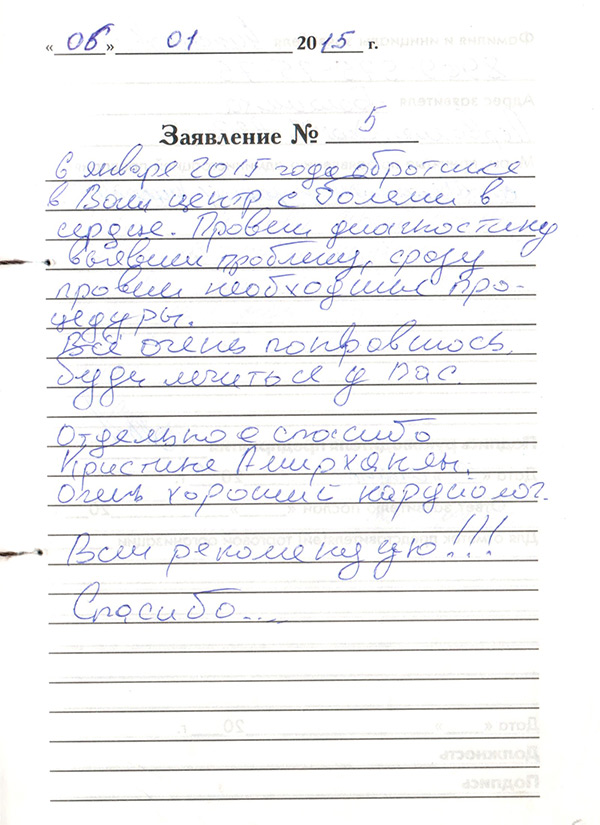 «06» 01 2015 г.
Заявление № 5
6 января 2015 года обротился
в Ваш центр с болями в
сердце. Провели диагностику
выявили проблему, сразу
провели необходимые про-
цедуры.
Всё очень понравилось,
буду лечиться у Вас.
Отдельное спасибо
Кристине Амирханян.
Очень хороший кардиолог.
Всем рекомендую!!!
Спасибо....